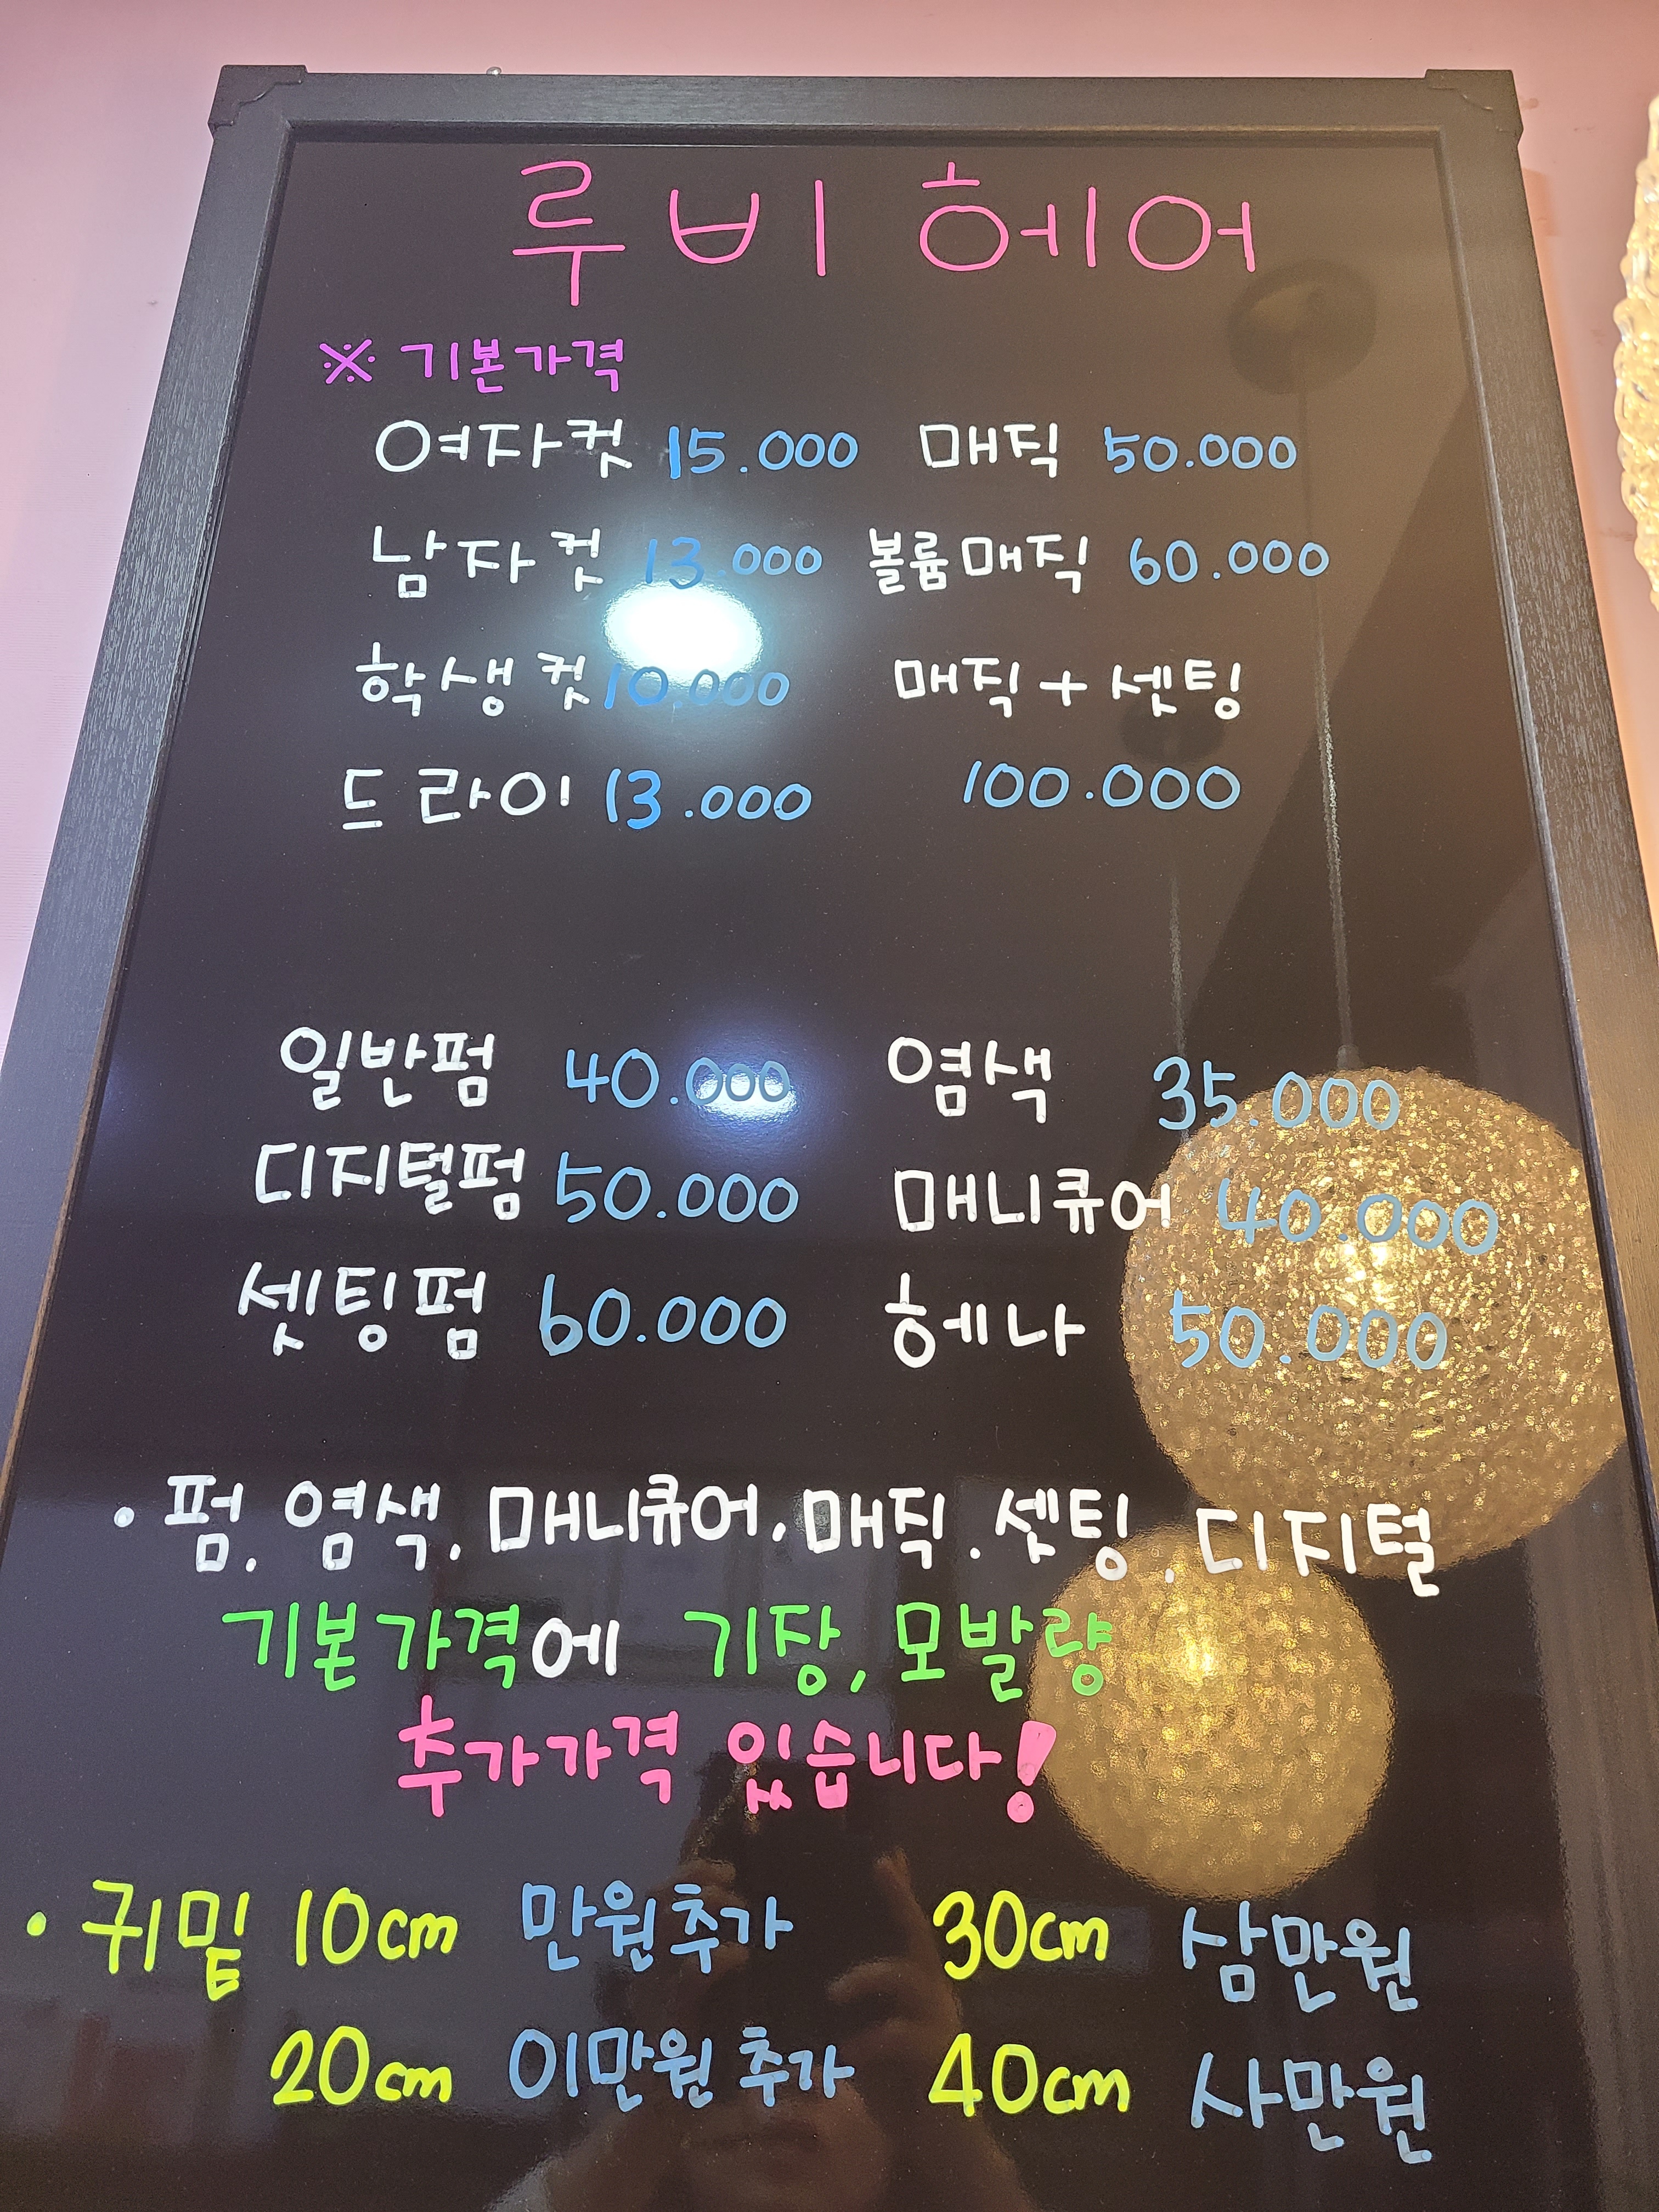 루비 헤어
※ 기본가격
여자컷 15.000 매직 50.000
남자컷 13.000 볼륨매직 60.000
학생컷 10.000 매직 + 셋팅
드라이 13.000 100.000
일반펌 40.000 염색 35.000
디지털펌 50.000 매니큐어 40.000
셋팅펌 60.000 헤나 50.000
· 펌. 염색. 매니큐어. 매직. 셋팅. 디지털
기본가격에 기장, 모발량
추가가격 있습니다!
· 귀밑 10cm 만원추가 30cm 삼만원
20cm 이만원 추가 40cm 사만원